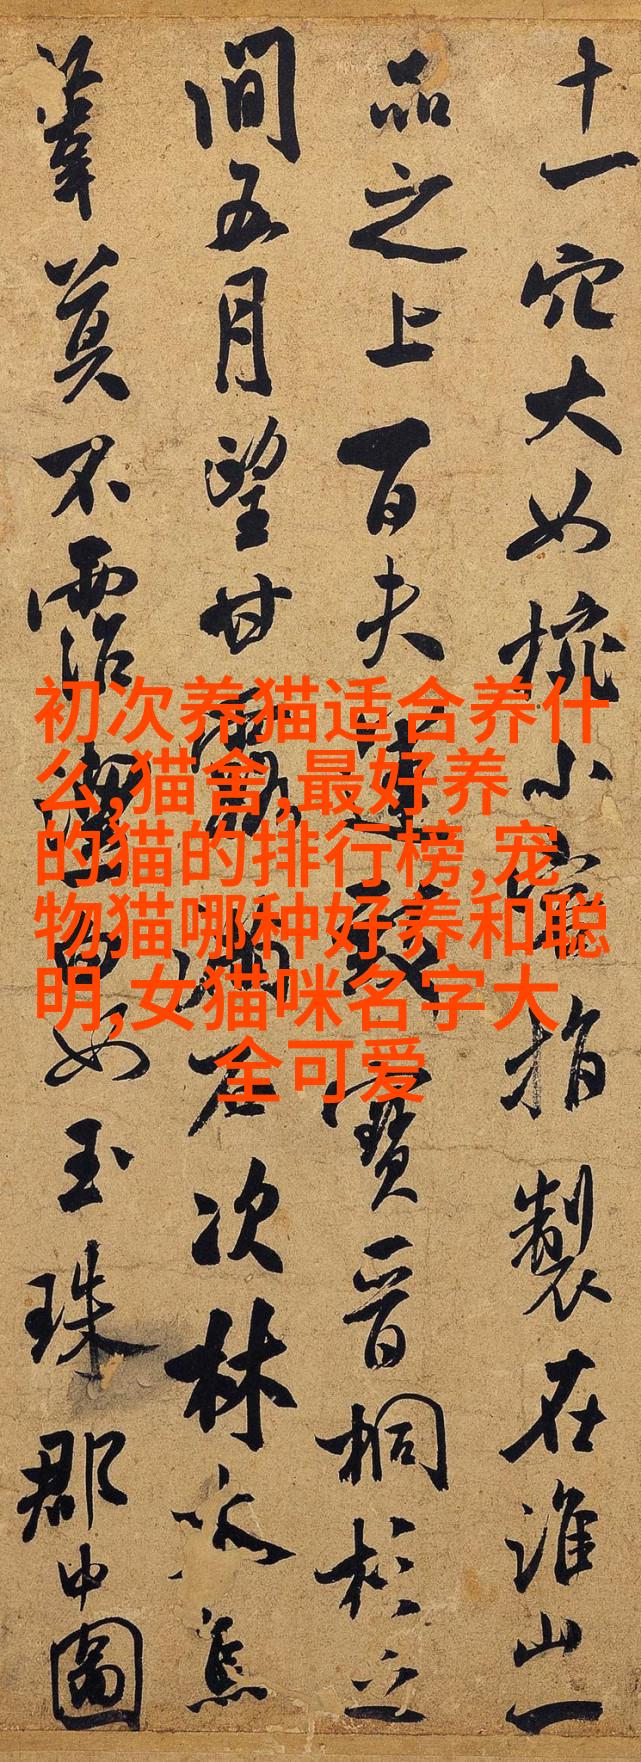 十一穴大如椀小容指製在淮山一
品之上百夫運致寶晉桐杉之
間五月望甘露滿石次林木焦
葦莫不霑潔白如玉珠郡中圖
初次养猫适合养什
么,猫舍,最好养
的猫的排行榜,宠
物猫哪种好养和聪
明,女猫咪名字大
全可爱